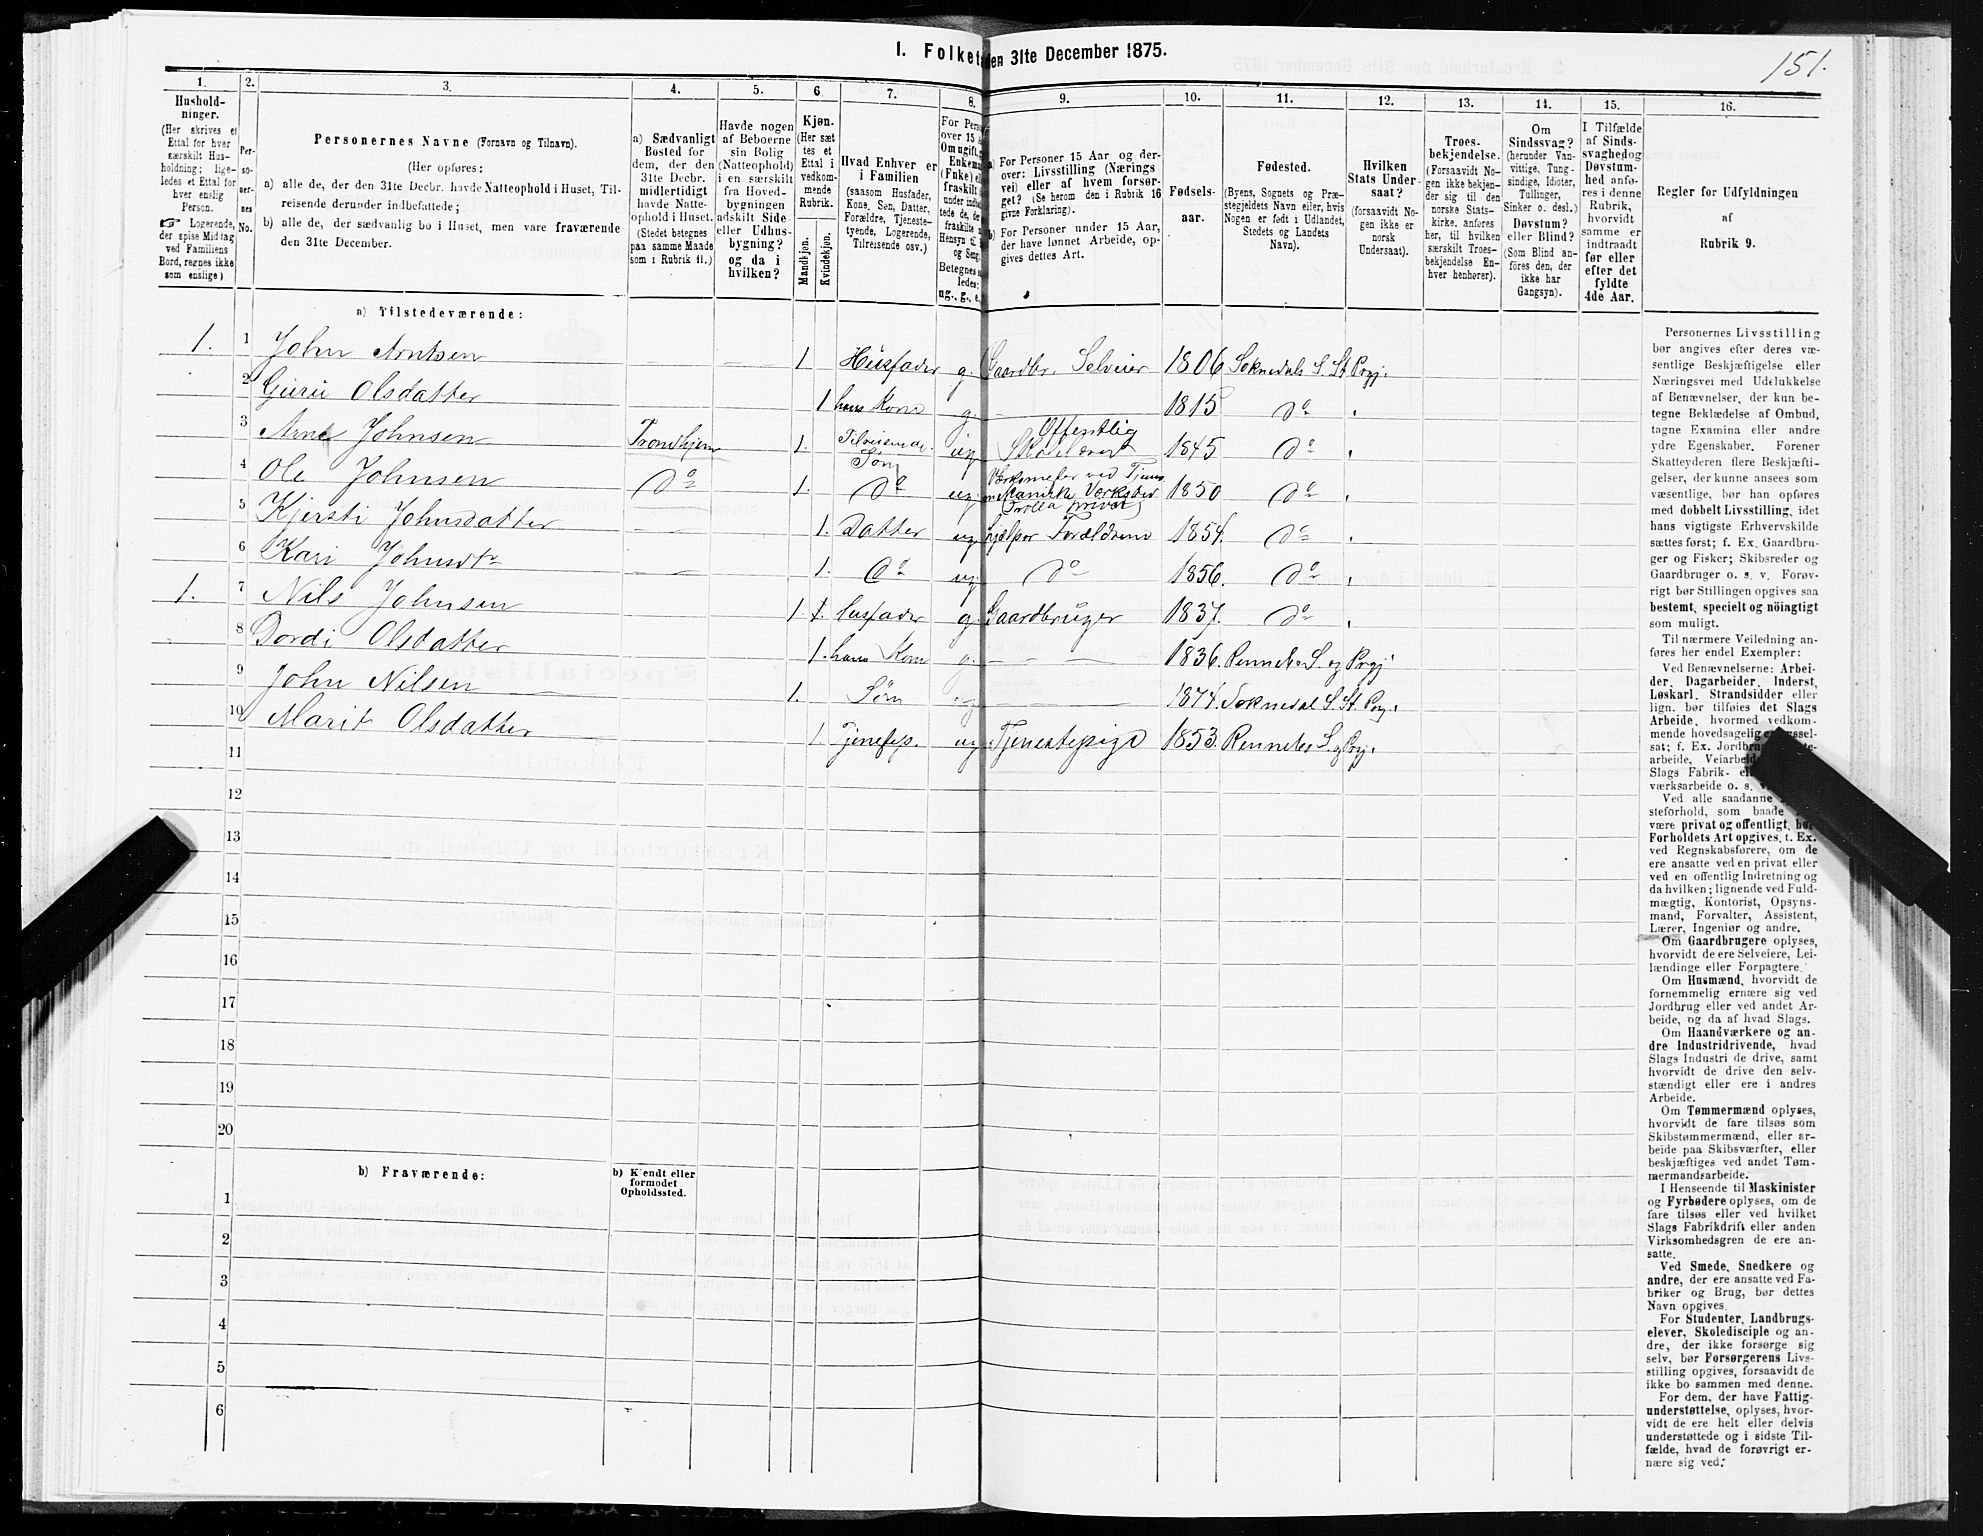 1. Folket den 31te December 1875.
151.
1.
2.
3.
4.
5.
6.
7.
8.
9.
10.
11.
12.
13.
14.
15.
16.
Hushold-
ninger.
(Her skrives et
Ettal for hver
særskilt Hus-
holdning; lige-
ledes et Ettal for
hver enslig
Person.
☞ Logerende,
der spise Middag
ved Familiens
Bord, regnes ikke
som enslige)
Per-
so-
ner-
nes
No.
Personernes Navne (Fornavn og Tilnavn).
(Her opføres:
a) alle de, der den 31te Decbr. havde Natteophold i Huset, Til-
reisende derunder indbefattede;
b) alle de, der sædvanlig bo i Huset, men vare fraværende
den 31te December.
a) Sædvanligt
Bosted for
dem, der den
31te Decbr.
midlertidigt
havde Natte-
ophold i Huset.
(Stedet betegnes
paa samme Maade
som i Rubrik 11.)
Havde nogen
af Beboerne
sin Bolig
(Natteophold)
i en særskilt
fra Hoved-
bygningen
adskilt Side-
eller Udhus-
bygning?
og da i
hvilken?
Kjøn.
(Her sæt
tes et
Ettal i
vedkom-
mende
Rubrik.
Mandkjøn.
Kvindekjøn.
Hvad Enhver er
i Familien
(saasom Husfader,
Kone, Søn, Datter,
Forældre, Tjeneste-
tyende, Logerende,
Tilreisende osv.)
For Pers
over 15
Om ugift,
Enkem
(Fnke) e
fraskilt
under indbe
tede de, de
fraskilte
Hensyn til
og Seng
Betegnes s
ledes:
ug., g., e.
a) For Personer 15 Aar og der-
over: Livsstilling (Nærings
vei) eller af hvem forsør-
get? (Se herom den i Rubrik 16
givne Forklaring).
b) For Personer under 15 Aar,
der have lønnet Arbeide, op-
gives dettes Art.
Fødsels-
aar.
Fødested.
(Byens, Sognets og Præ-
stegjeldets Navn eller, hvis
Nogen er født i Udlandet,
Stedets og Landets
Navn).
Hvilken
Stats Under
saat?
(forsaavidt No-
gen ikke er
norsk
Undersaat).
Troes-
bekjendelse.
(Forsaavidt No-
gen ikke bekjen-
der sig til den
norske Stats-
kirke, anføres
her, til hvilken
særskilt Troes-
bekjendelse En-
hver henhører).
Om
Sindssvag?
(herunder Van-
vittige, Tung-
sindige, Idioter,
Tullinger,
Sinker o. desl.)
Døvstum?
eller Blind?
(Som Blind an-
føres den, der
ikke har
Gangsyn).
I Tilfælde
af Sinds-
svaghed og
Døvstum-
hed anfø-
res i denne
Rubrik,
hvorvidt
samme er
indtraadt
før eller
efter det
fyldte
4de Aar.
Regler for Udfyldningen
af
Rubrik 9.
a) Tilstedeværende:
1. 1 John Arntsen 1 Husfader g. Gaardbr. Selveier 1806 Soknedals S. St. Prgj.
2 Guru Olsdatter 1 hans Kone g. 1815 Do
3 Arne Johnsen Trondhjem 1. Tilreisende Søn ug Offentlig Skolelærer 1845 Do
4 Ole Johnsen Do 1. Do ug. 1850 Do
5 Kjersti Johnsdatter 1. Datter ug. hjælper Forældrene 1854. Do
6 Kari Johnsdtr 1. Do ug. Do 1856. Do
1. 7 Nils Johnsen 1. husfader g. Gaardbruger 1837. Do
8 Dordi Olsdatter 1. hans Kone g. 1836. Rennebo S. og Prgj
9 John Nilsen 1. Søn ug 1874. Soknedal S. St. Prgj.
10 Marit Olsdatter 1. Tjenestep. ug. Tjenestepige 1853. Rennebo S. og Prgj.
11
12
13
14
15
16
17
18
19
20
b) Fraværende:
b) Kjendt eller
formodet
Opholdssted.
1
2
3
4
5
6
Personernes Livsstilling
bør angives efter deres væ-
sentlige Beskjæftigelse eller
Næringsvei med Udelukkelse
af Benævnelser, der kun be-
tegne Beklædelse af Ombud,
tagne Examina eller andre
ydre Egenskaber. Forener
Skatteyderen flere Beskjæfti-
gelser, der kunne ansees som
væsentlige, bør han opføres
med dobbelt Livsstilling, idet
hans vigtigste Erhvervskilde
sættes først; f. Ex. Gaardbru-
ger og Fisker; Skibsreder og
Gaardbruger o. s. v. Forøv-
rigt bør Stillingen opgives saa
bestemt, specielt og nöiagtigt
som muligt.
Til nærmere Veiledning an-
føres her endel Exempler:
Ved Benævnelserne: Arbei-
der, Dagarbeider, Inderst,
Løskarl, Strandsidder eller
lign. bør tilføies det Slags
Arbeide, hvormed vedkom-
mende hovedsagelig er syssel-
sat; f. Ex. Jordbru
arbeide, Veiarbeide
Slags Fabrik- el
værksarbeide o. s. v.
Ved alle saadanne
steforhold, som baade
være privat og offentligt, bør
Forholdets Art opgives, t. Ex.
ved Regnskabsførere, om de
ere ansatte ved en privat eller
ved en offentlig Indretning og
da hvilken; lignende ved Fuld-
mægtig, Kontorist, Opsyns-
mand, Forvalter, Assistent,
Lærer, Ingeniør og andre.
Om Gaardbrugere oplyses,
hvorvidt de ere Selveiere, Lei-
lændinge eller Forpagtere.
Om Husmænd, hvorvidt de
fornemmelig ernære sig ved
Jordbrug eller ved andet Ar-
beide, og da af hvad Slags.
Om Haandværkere og an-
dre Industridrivende, hvad
Slags Industri de drive, samt
hvorvidt de drive den selv-
stændigt eller ere i andres
Arbeide.
Om Tømmermænd oplyses,
hvorvidt de fare tilsøs som
Skibstømmermænd, eller ar-
beide paa Skibsværfter, eller
beskjæftiges ved andet Tøm-
mermandsarbeide.
I Henseende til Maskinister
og Fyrbødere oplyses, om de
fare tilsøs eller ved hvilket
Slags Fabrikdrift eller anden
Virksomhedsgren de ere an-
satte.
Ved Smede, Snedkere og
andre, der ere ansatte ved Fa-
briker og Brug, bør dettes
Navn opgives.
For Studenter, Landbrugs-
elever, Skoledisciple og an-
dre, der ikke forsørge sig
selv, bør Forsørgerens Livs-
stilling opgives, forsaavidt de
ikke bo sammen med denne.
For dem, der have Fattig-
understøttelse, oplyses, hvor-
vidt de ere helt eller delvis
understøttede og i sidste Til-
fælde, hvad de forøvrigt er-
nære sig ved.